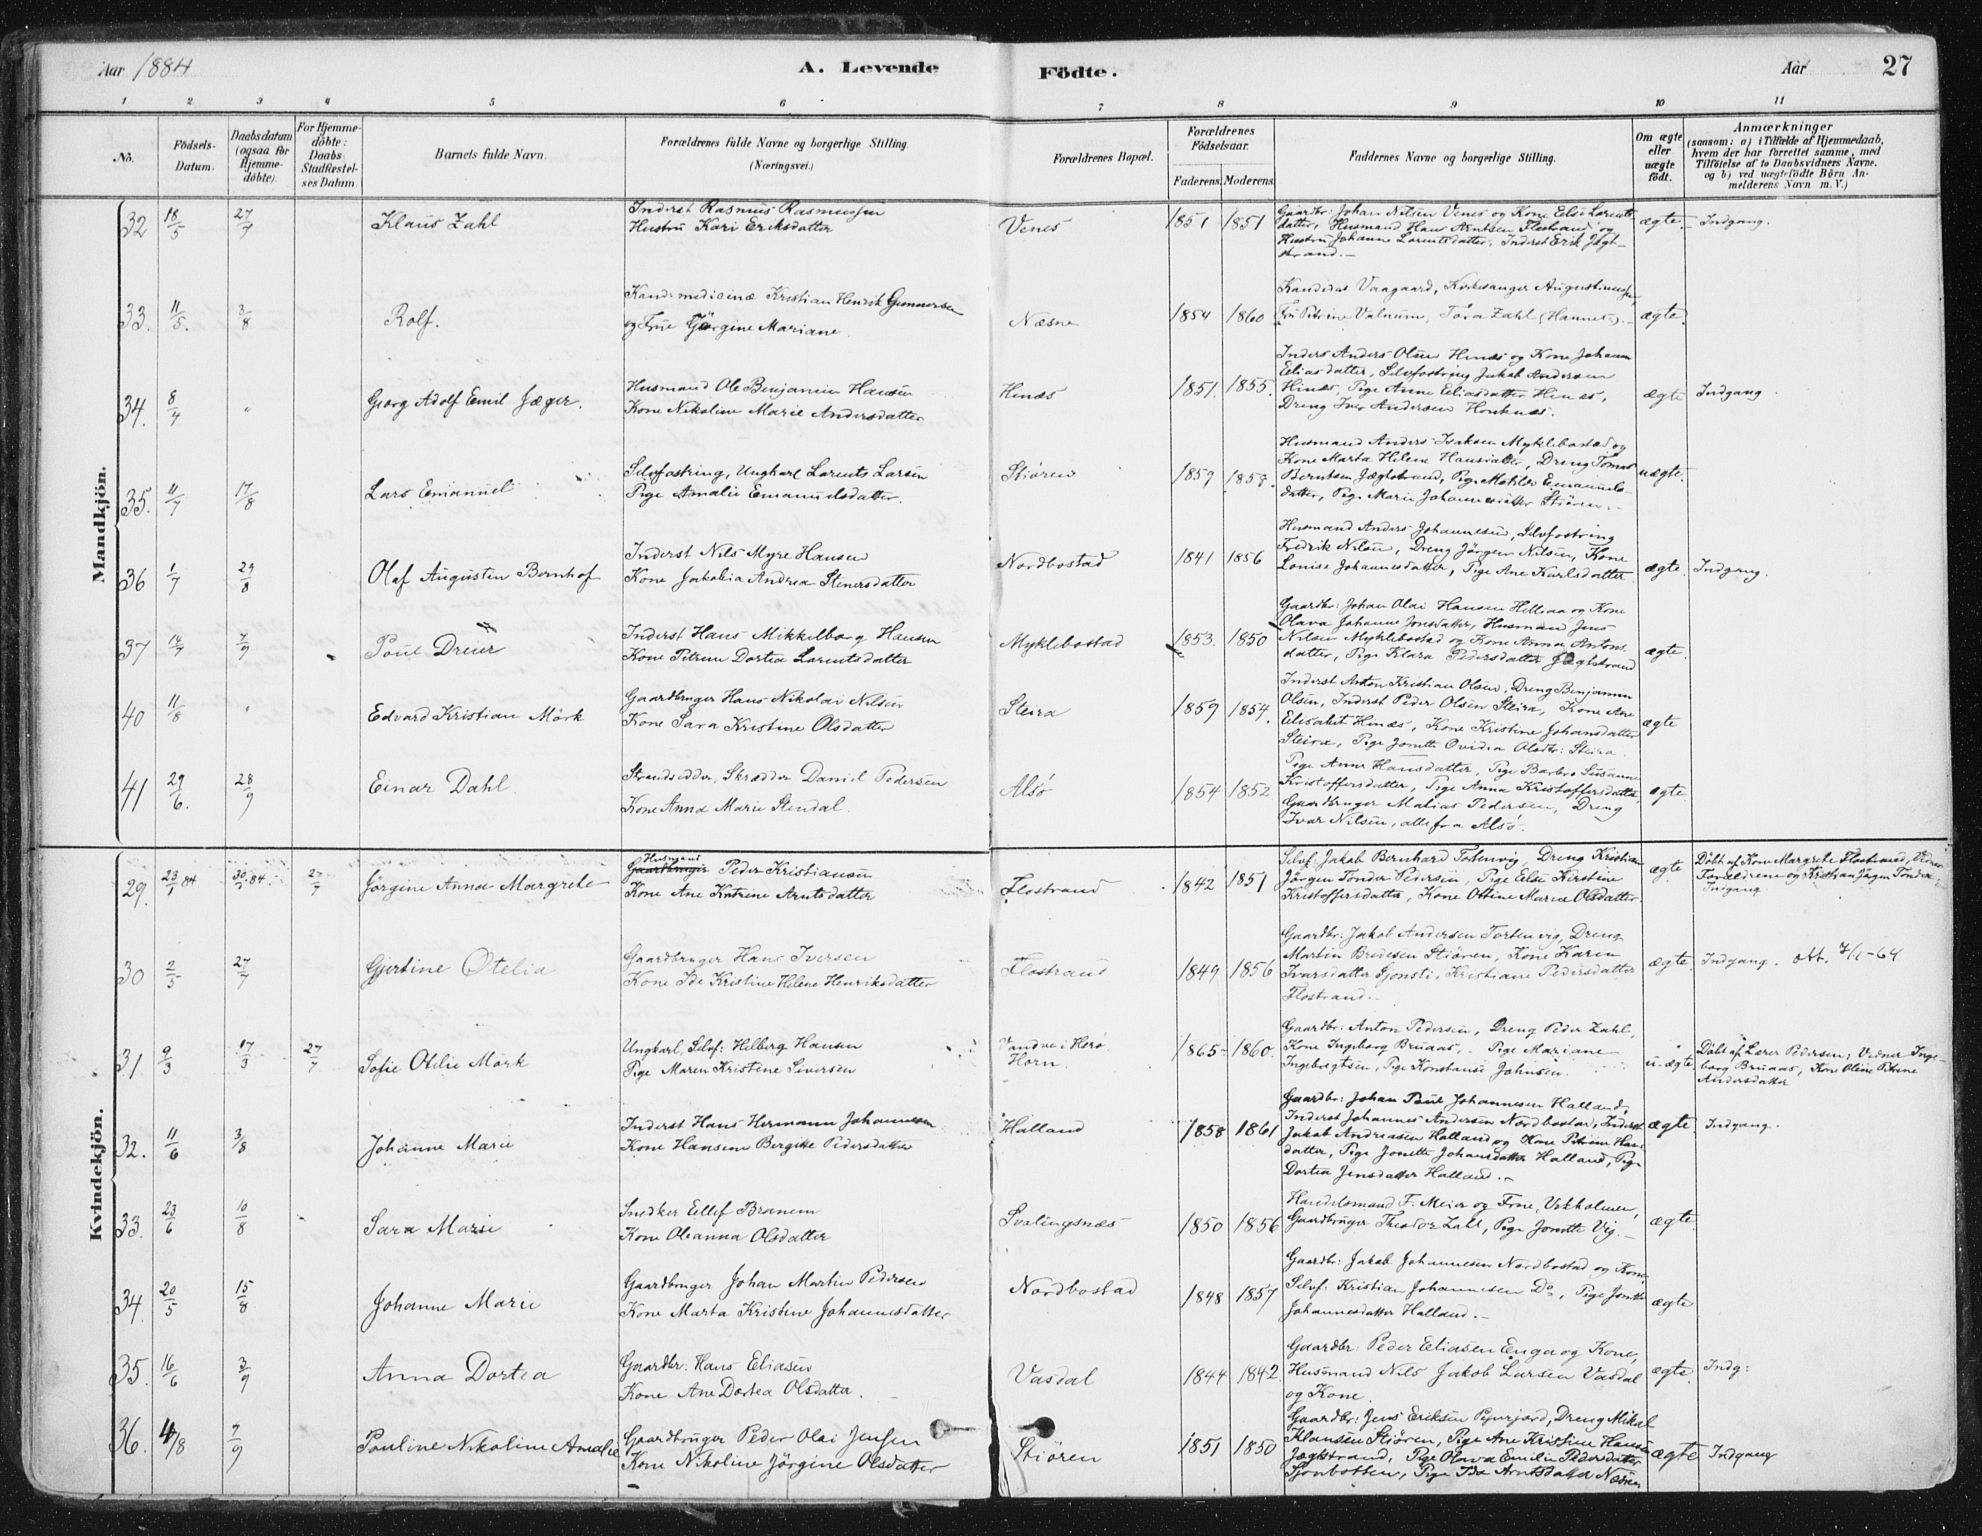 Aar 1884
A. Levende
Födte.
Aar
27
1 2 3 4 5 6 7 8 9 10 11
No.
Födsels-Datum.
Daabsdatum (ogsaa for Hjemme-döbte).
For Hjemme-döbte: Daabs-Stadfæstel-ses Datum.
Barnets fulde Navn.
Forældrenes fulde Navne og borgerlige Stilling. (Næringsvei.)
Forældrenes Bopæl.
Forældrenes Födselsaar.
Faderens. Moderens.
Faddernes Navne og borgerlige Stilling.
Om ægte eller uægte födt.
Anmærkninger
(saasom: a) i Tilfælde af Hjemmedaab,
hvem der har forrettet samme, med
Tilföielse af to Daabsvidners Navne.
og b) ved uægte födte Börn An-
melderens Navn m. V.)
Mandkjön.
32 18/5 27/7 Klaus Zahl
Inderst Rasmus Rasmussen
Hustru Kari Eriksdatter
Venes 1851 1851
Gaardbr. Johan Nilsen Venes og Kone Else Larents
datter, Husmand Hans Arntsen Flostrand og
Hustru Johanne Larentsdatter, Inderst Erik Jægt-
strand.-
ægte. Indgang.
33. 11/5. 3/8 Rolf.
Kand: medicinæ Kristian Henrik Gunnersen
og Frue Jörgine Mariane.
Næsne 1854 1860
Kandidat Vaagaard, Kirkesanger Augustinussen,
Fru Petrine Valnum, Tora Zahl (Hannes).-
ægte.
34. 8/7 " Georg Adolf Emil Jæger.
Husmand Ole Benjamin Hansen
Kone Nikoline Marie Andersdatter
Hinæs 1851. 1855.
Inders Anders Olsen Hinæs og Kone Johann
Eliasdatter, Selvfostring Jakob Andersen
Hinæs, Pige Anne Eliasdatter Hinæs,
Dreng Iver Andersen
ægte Indgang.
35. 11/7 17/8 Lars Emanuel
Selvfostring, Ungkarl Larents Larsen
Pige Amalie Emanuelsdatter.
Stiören 1859
Husmand Anders Isaksen Myklebostad og
Kone Marta Helene Hansdatter, Dreng Tomas
Berntsen Jægtstrand, Pige Matilde Emanuels-
datter, Pige Marie Johannesdatter Stiören.-
uægte.
36 1/7 29/8 Olaf Augustin Bernhof
Inderst Nils Myre Hansen
Kone Jakobia Andrea Stenersdatter
Nordbostad 1841 1856
Husmand Anders Johannesen, Selvfostring
Fredrik Nilsen, Dreng Jörgen Nilsen, Kone
Lonise Johannesdatter, Pige Ane Karlsdatter
ægte. Indgang.
37 14/7 7/9 Poul Dreier
Inderst Hans Mikkelborg Hansen
Kone Petrine Dortea Larentsdatter
Myklebostad 1853. 1850
Gaardbr: Johan Olai Hansen Hellaa og Kone
Olava Johanne Jonsdatter, Husmand Jens
Nilsen Myklebostad og Kone Anna Antons
datter, Pige Klara Pedersdatter Jægtstrand
ægte.
40 11/8 " Edvard Kristian Mörk
Gaardbruger Hans Nikolai Nilsen
Kone Sara Kristine Olsdatter
Steira 1859 1854.
Inderst Anton Kristian Olsen, Dreng Benjamin
Olsen, Inderst Peder Olsen Steira, Kone Ane
Elisabet Hinæs, Kone Kristine Johansdatter
Steira, Pige Jonette Ovidia Olsdtr: Steira.
ægte
41 29/6. 28/9 Einar Dahl.
Strandsidder, Skrædder Daniel Pedersen
Kone Anna Marie Stendal.
Alsø 1854 1852
Pige Anne Hansdatter, Pige Barbro Susanne
Kristoffersdatter, Pige Anna Kristoffersdatter
Gaardbruger Matias Pedersen, Dreng
Ivar Nilsen, alle fra Alsø.
ægte.
Kvindekjön.
29. 23/1 84 30/1 84. 27/7 Jörgine Anna Margrete
Husmand
Gaardbruger Peder Kristiansen
Kone Ane Katrine Arntsdatter
Flostrand 1842 1851
Selvf. Jakob Bernhard Tortenvig, Dreng Kristian
Jörgen Tonder Pedersen, Pige Else Kirstine
Kristoffersdatter, Kone Ottine Marie Olsdatter
ægte. Döbt af Kone Margrete Flostrand, Vidner
Forældrene og Kristian Jörgen Tonder.
Indgang
30 2/5 27/7 Gjertine Otelia
Gaardbruger Hans Iversen
Kone Ide Kristine Helene Henriksdatter
Flostrand 1849 1856
Gaardbr: Jakob Andersen Tortenvig, Dreng
Martin Bredesen Stiören, Kone Karen
Ivarsdatter Gjonsti, Kristiane Pedersdatter
Flostrand.-
ægte. Indgang. att. 7/1-64
31 9/3 17/3 27/7 Sofie Otelie Mörk
Ungkarl, Selvf: Hilberg Hansen
Pige Maren Kristine Siversen
Vandve i Herø.
Horn. 1865- 1860.
Gaardbr: Anton Pedersen, Dreng Peder Zahl,
Kone Ingeborg Bruaas, - Pige Mariane
Ingebregtsen, Pige Konstanse Johnsen.
u-ægte Döbt af Lærer Pedersen, Vidner Inge-
borg Bruaas, Kone Oline Petrine
Andersdatter
32. 11/6 3/8 Johanne Marie
Inderst Hans Hermann Johannesen
Kone Hansine Bergitte Pedersdatter
Halland 1858 1861
Gaardbr: Johan Poul Johannesen Halland,
Inderst Johannes Andersen Nordbostad, Inderst
Jakob Andreasen Halland og Kone Petrine Hans
datter, Pige Jonette Johansdatter Halland, Pige
Dortea Jensdatter Halland.-
ægte. Indgang.
33. 23/6 10/8 Sara Marie
Snedker Ellef Branem
Kone Oleanna Olsdatter
Svalingsnæs 1850 1856
Handelsmand F. Meier og Frue, Ukholmen,
Gaardbruger Theodor Zahl, Pige Jonette Vig.-
ægte
34. 20/5 15/8 Johanne Marie
Gaardbruger Johan Martin Pedersen
Kone Marta Kristine Johannesdatter
Nordbostad 1848 1857
Gaardbr: Jakob Johannesen Nordbostad og Kone,
Selvf. Kristian Johannesen Do, Pige Jonette
Johannesdatter Halland.-
ægte
35. 16/6 3/9 Anna Dortea
Gaardbr: Hans Eliasen
Kone Ane Dortea Olsdatter.
Vasdal 1844 1842.
Gaardbr: Peder Eliasen Enga og Kone,
Husmand Nils Jakob Larsen Vasdal
og Kone.
ægte. Indg:
36. 4/8 7/9 Pauline Nikoline Amalie
Gaardbruger Peder Olai Jensen
Kone Nikoline Jörgine Olsdatter
Stiören 1851 1850
Gaardbr: Jens Eriksen Pepurjord, Dreng Mikal
Klausen Stiören, Pige Ane Kristine Hansen
Jægtstrand, Pige Olava Emilie Pedersdatter
Sjonbotten, Pige Ida Arntsdatter Næsne
ægte Indgang